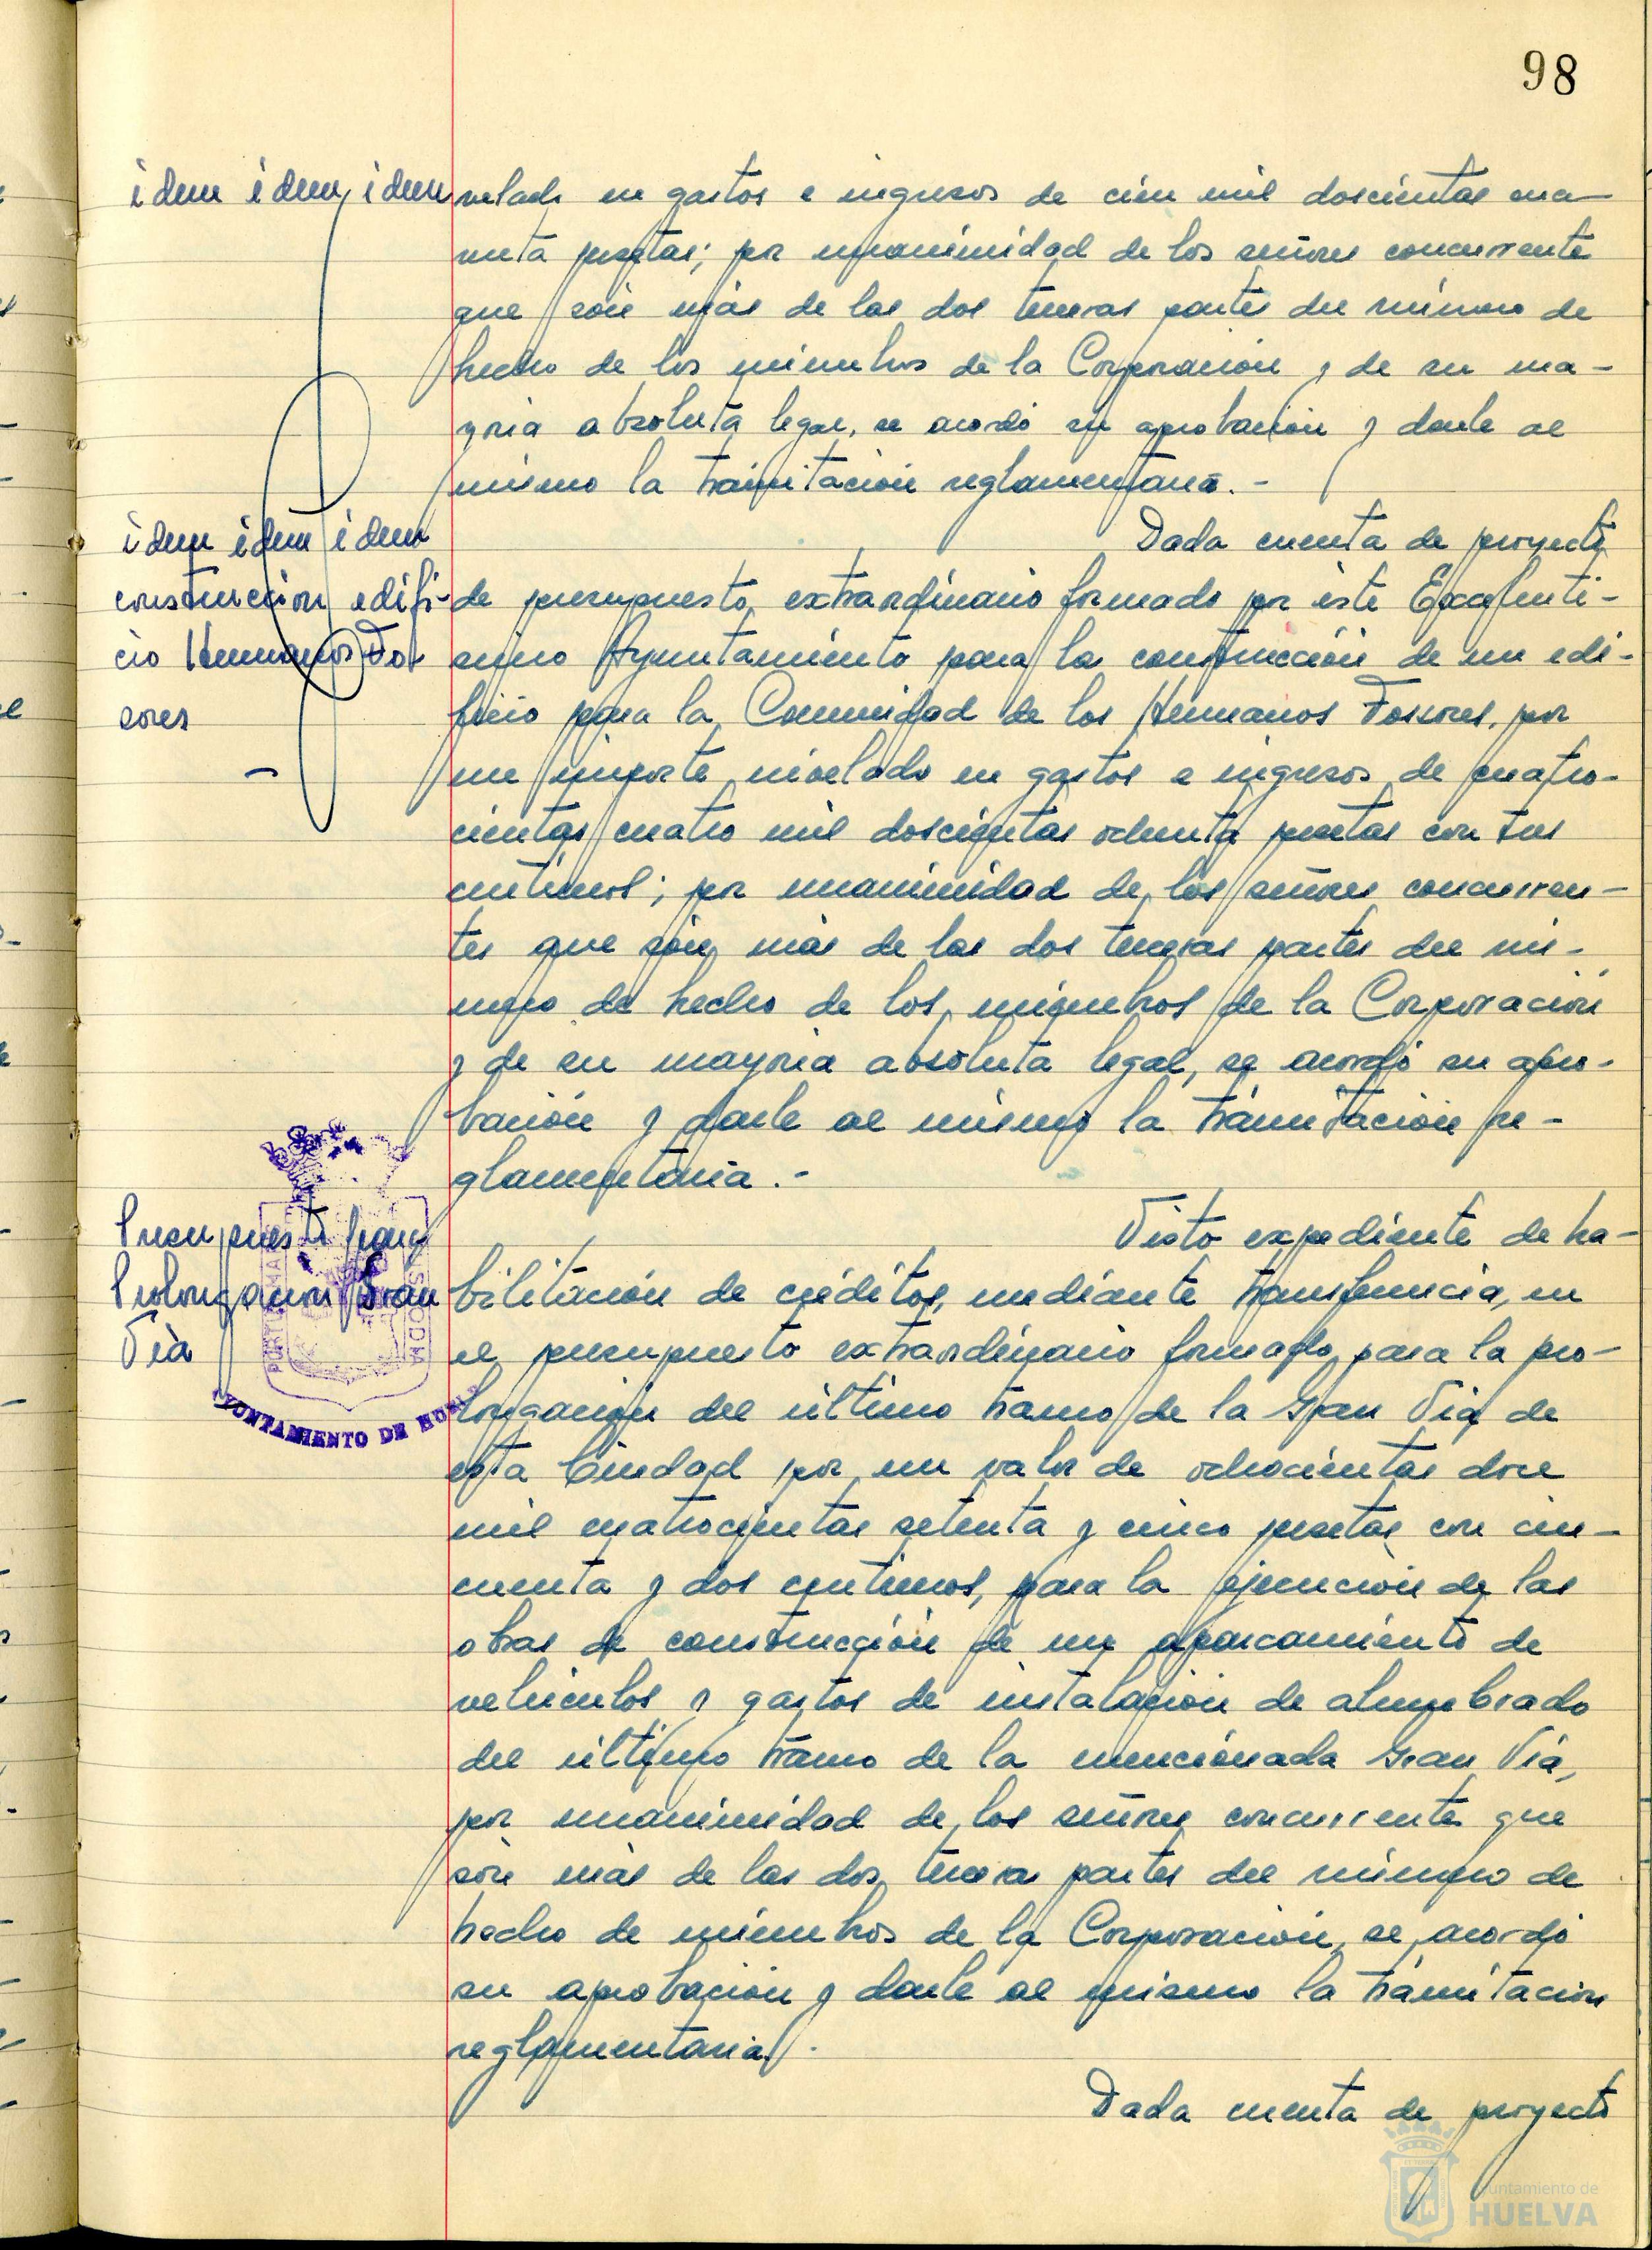 98
idem idem idem
velado en gastos e ingresos de cien mil doscientas cua-
renta pesetas; por unanimidad de los señores concurrentes
que són más de las dos terceras partes del número de
hecho de los miembros de la Corporación y de su ma-
yoria absoluta legal, se acordó su aprobación y darle al
mismo la tramitación reglamentaria.-
idem idem idem
construccion edifi-
cio Hermanos Fos
sores
Dada cuenta de proyecto
de presupuesto extraordinario formado por éste Excelenti-
simo Ayuntamiento para la construcción de un edi-
ficio para la Comunidad de los Hermanos Fossores, por
un importe nivelado en gastos e ingresos de cuatro-
cientas cuatro mil doscientas ochenta pesetas con tres
centimos; por unanimidad de los señores concurren-
tes que són más de las dos terceras partes del nú-
mero de hecho de los miembros de la Corporación
y de su mayoria absoluta legal, se acordó su apro-
bación y darle al mismo la tramitación re-
glamentaria.-
Presupuesto para
Prolongacion Gran
Via
Visto expediente de ha-
bilitación de créditos, mediante transferencia, en
el presupuesto extraordinario formado para la pro-
longación del último tramo de la Gran Via de
esta Ciudad por un valor de ochocientas doce
mil cuatrocientas setenta y cinco pesetas con cin-
cuenta y dos centimos, para la ejecución de las
obras de construcción de un aparcamiento de
vehiculos y gastos de instalación de alumbrado
del último tramo de la mencionada Gran Via,
por unanimidad de los señores concurrentes que
són más de las dos terceras partes del número de
hecho de miembros de la Corporación, se acordó
su aprobación y darle al mismo la tramitación
reglamentaria.-
Dada cuenta de proyecto
PORTUS MA
CUSTODIA
AYUNTAMIENTO DE HUELVA
Ayuntamiento de
HUELVA